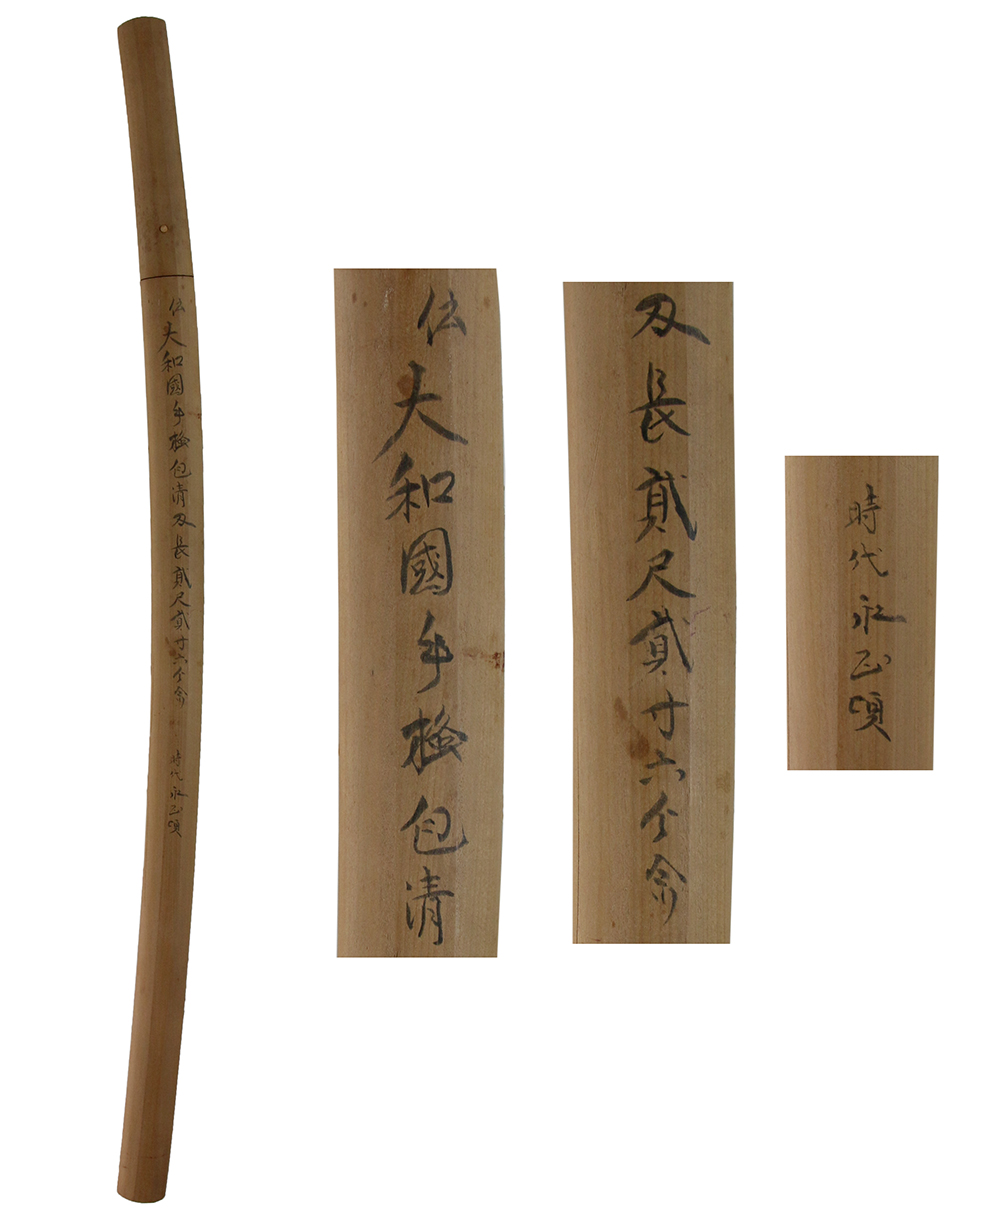 伝大和國手掻包清刃長貳尺貳寸六分余 時代永正頃
伝大和國手掻包清
刃長貳尺貳寸六分余
時代永正頃